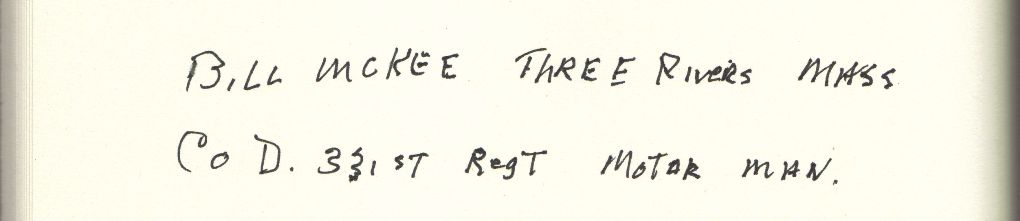 BILL MCKEE THREE RIVERS MASS
Co D. 331ST RegT MOTAR MAN.